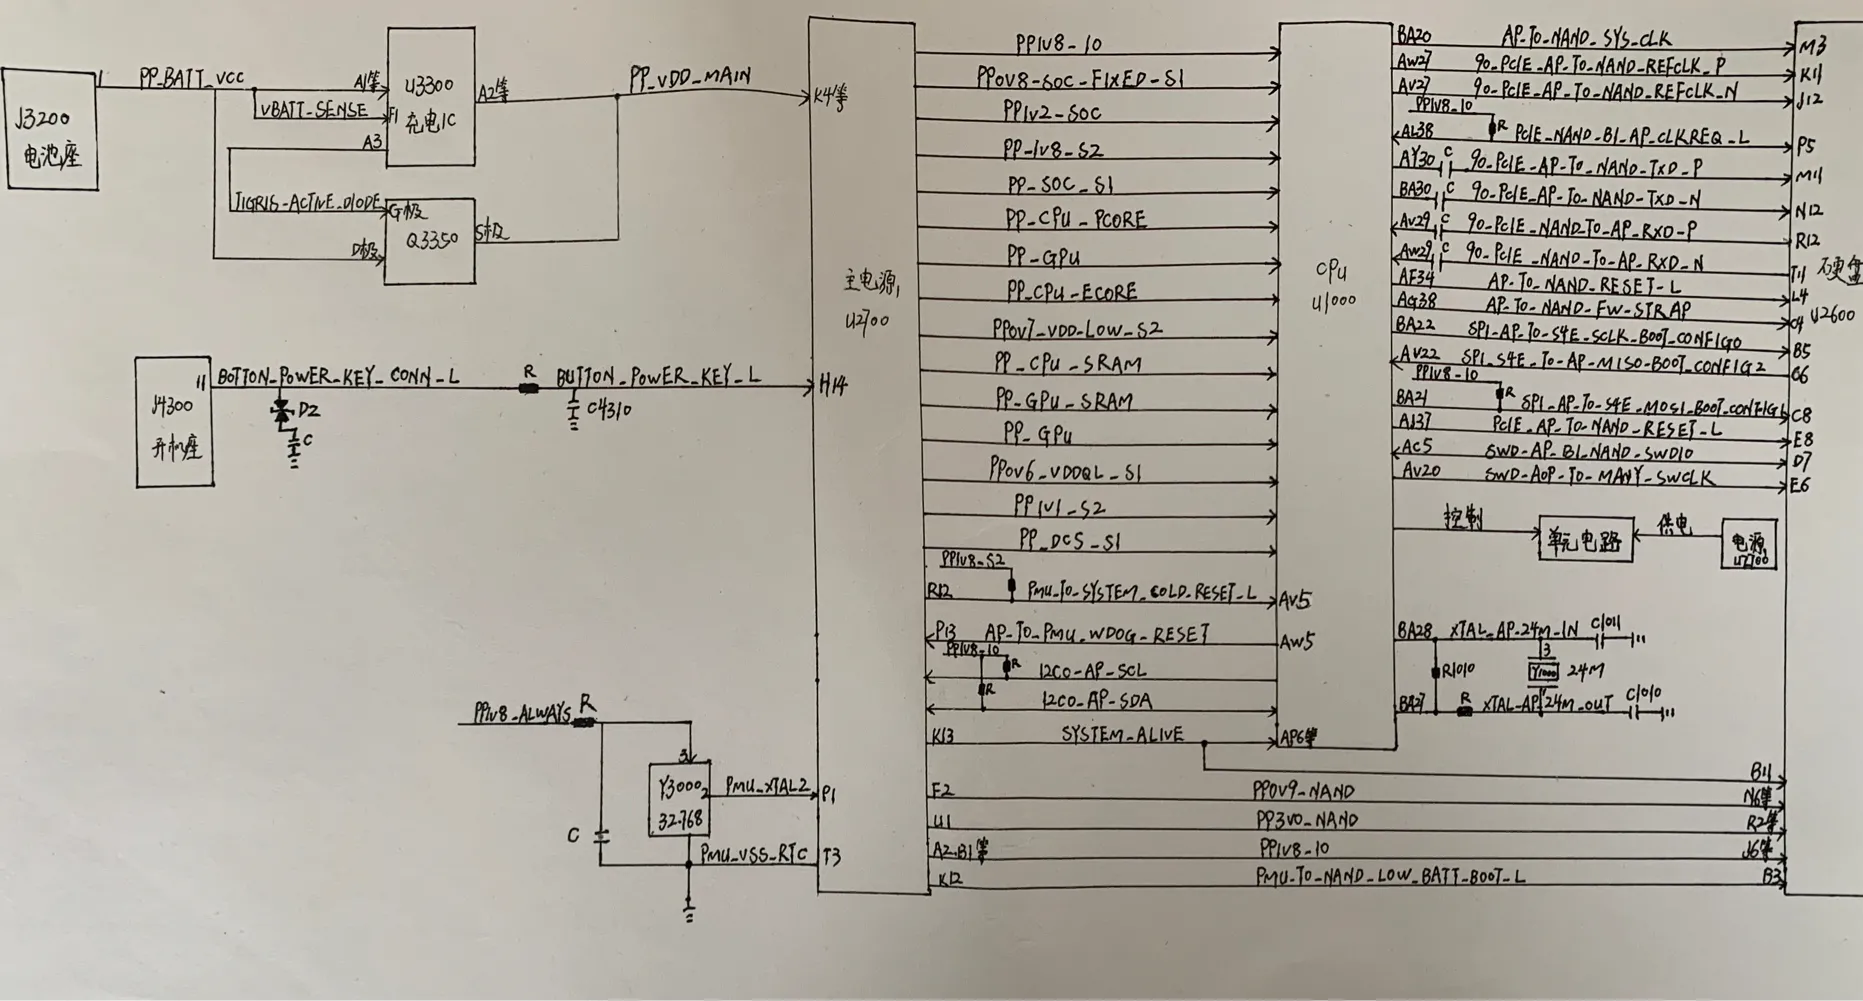 J3200
电池座
1
PP_BATT_VCC
VBATT_SENSE
A1等
F1
A3
U3300
充电IC
A2等
PP_VDD_MAIN
K4等
TIGRIS_ACTIVE_DIODE
G极
Q3350
S极
D极
J4300
开机座
11
BOTTON_POWER_KEY_CONN_L
R
BUTTON_POWER_KEY_L
H14
D2
C
C4310
PP1V8_ALWAYS
R
C
3
Y3000
2
32.768
PMU_XTAL2
P1
PMU_VSS_RTC
T3
主电源
U2700
PP1V8-10
PP0V8-SOC-FIXED-S1
PP1V2-SOC
PP-1V8-S2
PP-SOC_S1
PP-CPU-PCORE
PP-GPU
PP_CPU-ECORE
PP0V7_VDD-LOW_S2
PP_CPU-SRAM
PP-GPU-SRAM
PP-GPU
PP0V6_VDDQL_S1
PP1V1-S2
PP_DCS_S1
PP1V8-S2
R12
PMU_TO_SYSTEM_COLD_RESET_L
AV5
P13
AP-TO-PMU_WDOG-RESET
AW5
PP1V8-10
R
I2C0-AP-SCL
R
I2C0-AP-SDA
K13
SYSTEM_ALIVE
AP6等
B11
F2
PP0V9_NAND
N6等
U1
PP3V0_NAND
R2等
A2.B1等
PP1V8-10
J6等
K12
PMU-TO-NAND_LOW_BATT-BOOT_L
B3
CPU
U1000
BA20
AP-TO-NAND_SYS_CLK
M3
AW27
90-PCIE_AP-TO-NAND-REFCLK_P
K11
AV27
90-PCIE_AP-TO-NAND-REFCLK_N
J12
PP1V8-10
R
AL38
PCIE_NAND-BI_AP_CLKREQ_L
P5
AY30
C
90-PCIE-AP-TO-NAND-TXD_P
M11
BA30
C
90-PCIE_AP-TO-NAND-TXD-N
N12
AV29
C
90-PCIE_NAND-TO-AP_RXD-P
R12
AW29
C
90-PCIE_NAND-TO-AP-RXD_N
T11
AF34
AP-TO-NAND_RESET-L
L4
AG38
AP-TO-NAND-FW-STRAP
BA22
SPI-AP-TO-S4E_SCLK_BOOT_CONFIG0
B5
AV22
SPI_S4E_TO-AP-MISO-BOOT_CONFIG2
C6
PP1V8-10
R
BA21
SPI_AP-TO-S4E_MOSI_BOOT_CONFIG1
C8
AJ37
PCIE_AP_TO-NAND-RESET_L
E8
AC5
SWD-AP_BI_NAND-SWDIO
D7
AV20
SWD-AOP-TO-MANY-SWCLK
E6
硬盘
U2600
控制
单元电路
供电
电源
U2700
BA28
XTAL_AP-24M-IN
C1011
R1010
3
Y1000
24M
BA27
R
XTAL-AP-24M-OUT
C1010